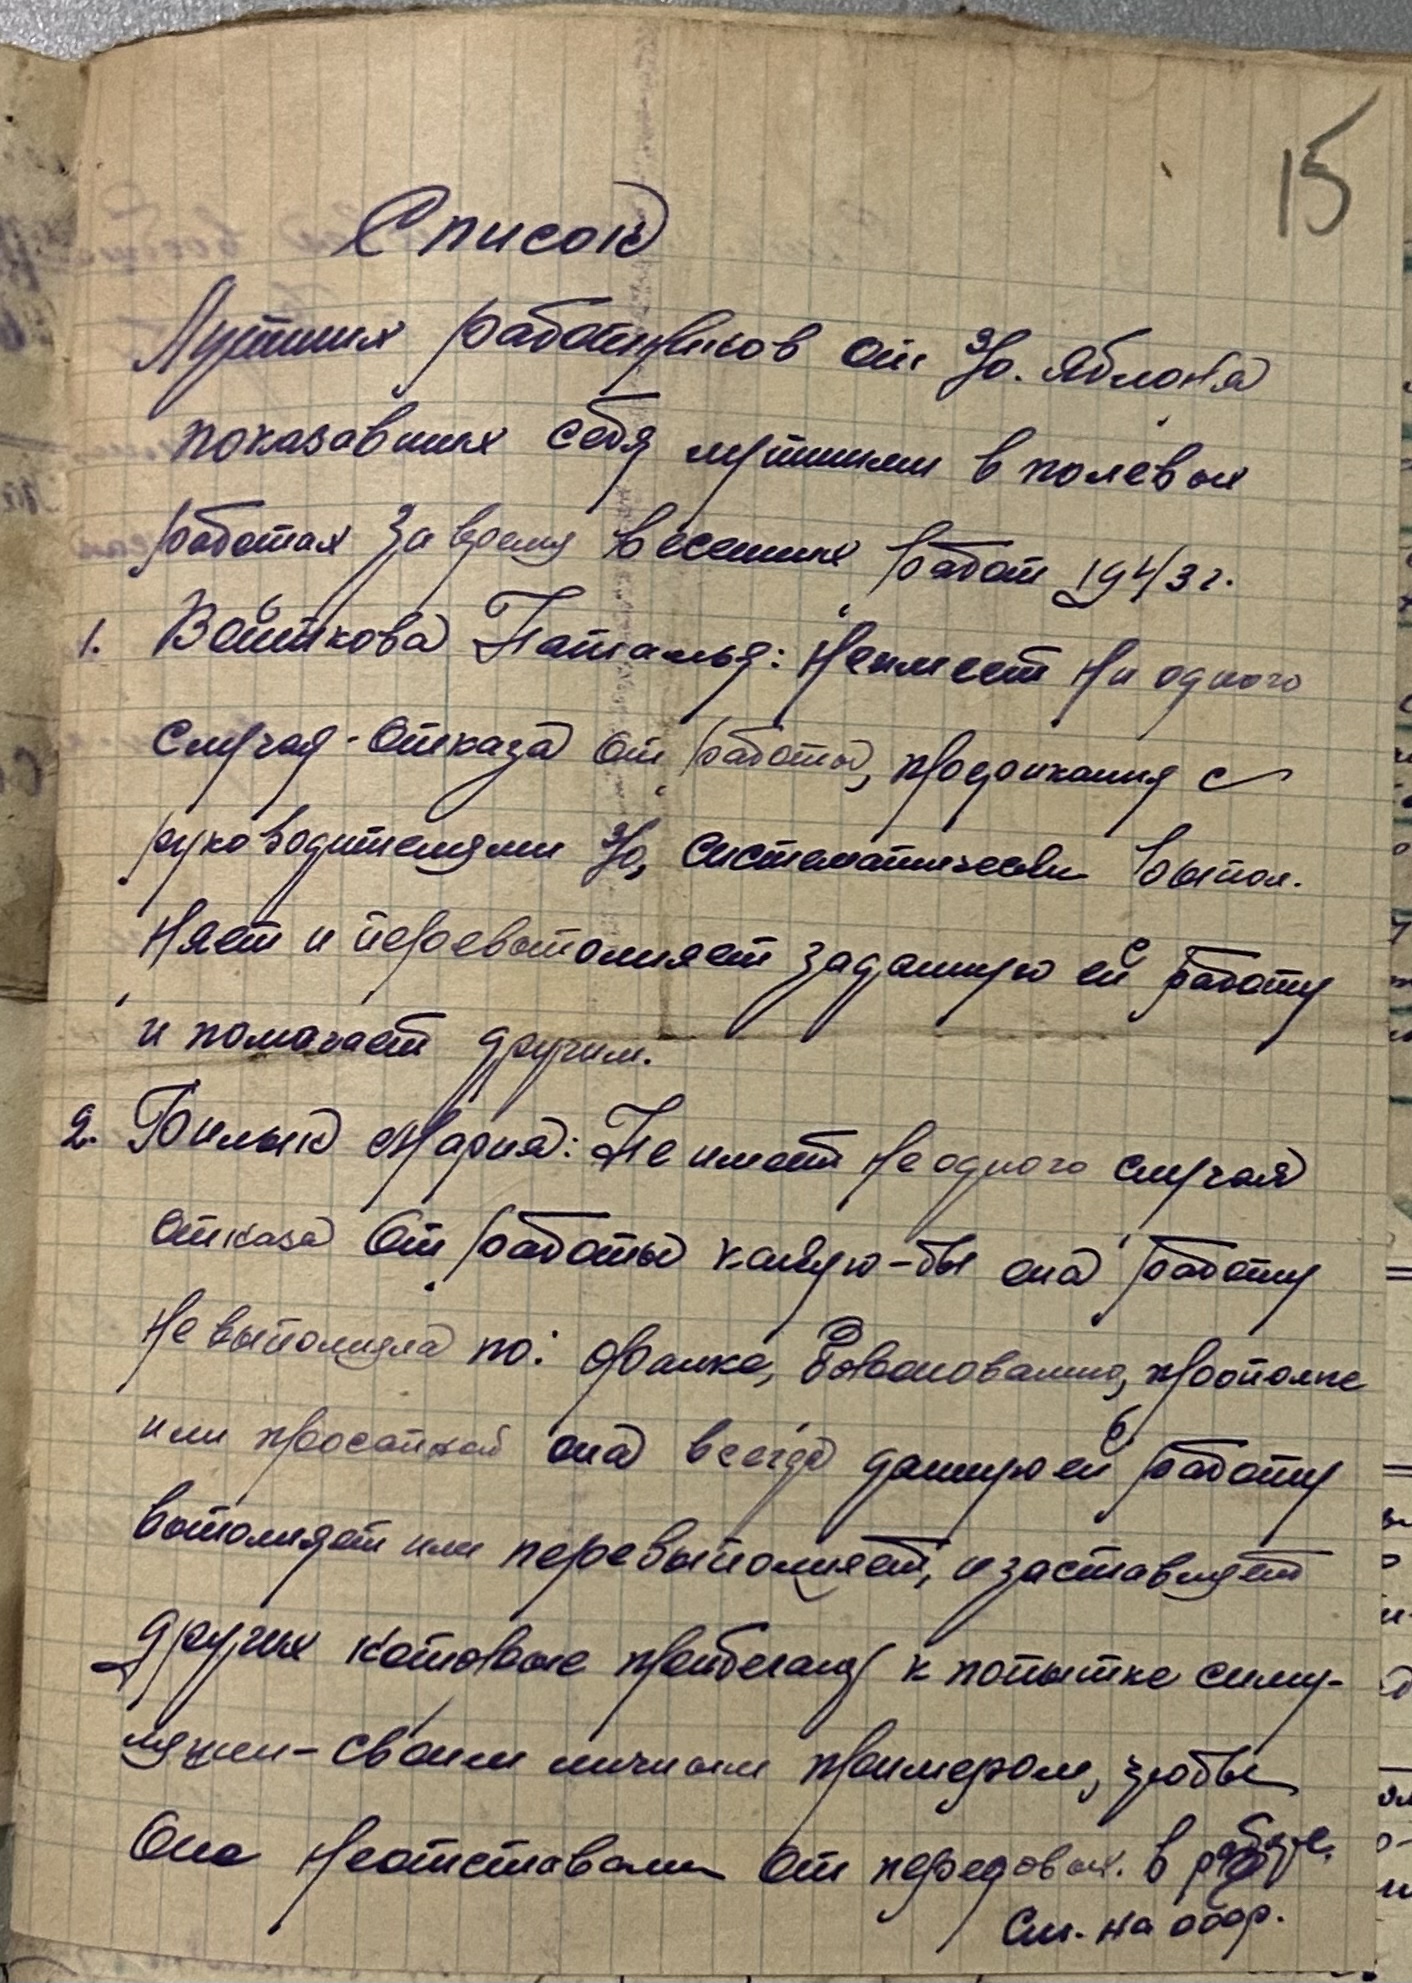 15
Список
Лутших работников от э/о. Яблоня
показавших себя лутшими в полевых
работах за время весенних работ 1943 г.
1. Войткова Наталья: Не имеет ни одного
случая - отказа от работы, прорикания с
руководителями э/о, систематически выпол.
няет и перевыполняет заданную ей работу
и помагает другим.
2. Билык Мария: Не имеет не одного случая
отказа от работы какую-бы она работу
не выполняла по: , прополке
или просапкой она всегда данную ей работу
выполняет или перевыполняет, и заставляет
других которые прибегают к попытке симу-
ляции - своим личным примером, чтобы
Они неотставали от передовых. в работе.
См. на обор.